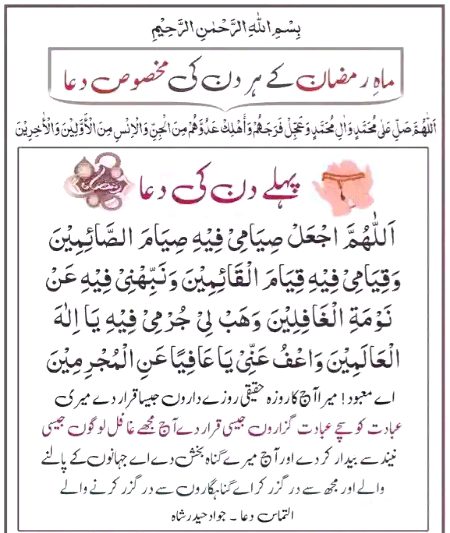 بِسْمِ اللهِ الرَّحْمٰنِ الرَّحِيْمِ
ماہِ رمضان کے ہر دن کی مخصوص دعا
اَللّٰهُمَّ صَلِّ عَلٰى مُحَمَّدٍ وَاٰلِ مُحَمَّدٍ وَعَجِّلْ فَرَجَهُمْ وَاَهْلِكْ عَدُوَّهُمْ مِنَ الْجِنِّ وَالْاِنْسِ مِنَ الْاَوَّلِيْنَ وَالْاٰخِرِيْنَ
پہلے دن کی دعا
اَللّٰهُمَّ اجْعَلْ صِيَامِىْ فِيْهِ صِيَامَ الصَّائِمِيْنَ
وَقِيَامِىْ فِيْهِ قِيَامَ الْقَائِمِيْنَ وَنَبِّهْنِىْ فِيْهِ عَنْ
نَوْمَةِ الْغَافِلِيْنَ وَهَبْ لِىْ جُرْمِىْ فِيْهِ يَا اِلٰهَ
الْعَالَمِيْنَ وَاعْفُ عَنِّىْ يَا عَافِيًا عَنِ الْمُجْرِمِيْنَ
اے معبود! میرا آج کا روزہ حقیقی روزے داروں جیسا قرار دے میری
عبادت کو سچے عبادت گزاروں جیسی قرار دے آج مجھے غافل لوگوں جیسی
نیند سے بیدار کر دے اور آج میرے گناہ بخش دے اے جہانوں کے پالنے
والے اور مجھ سے درگزر کر اے گناہگاروں سے درگزر کرنے والے
التماس دعا ۔ جواد حیدر شاہ